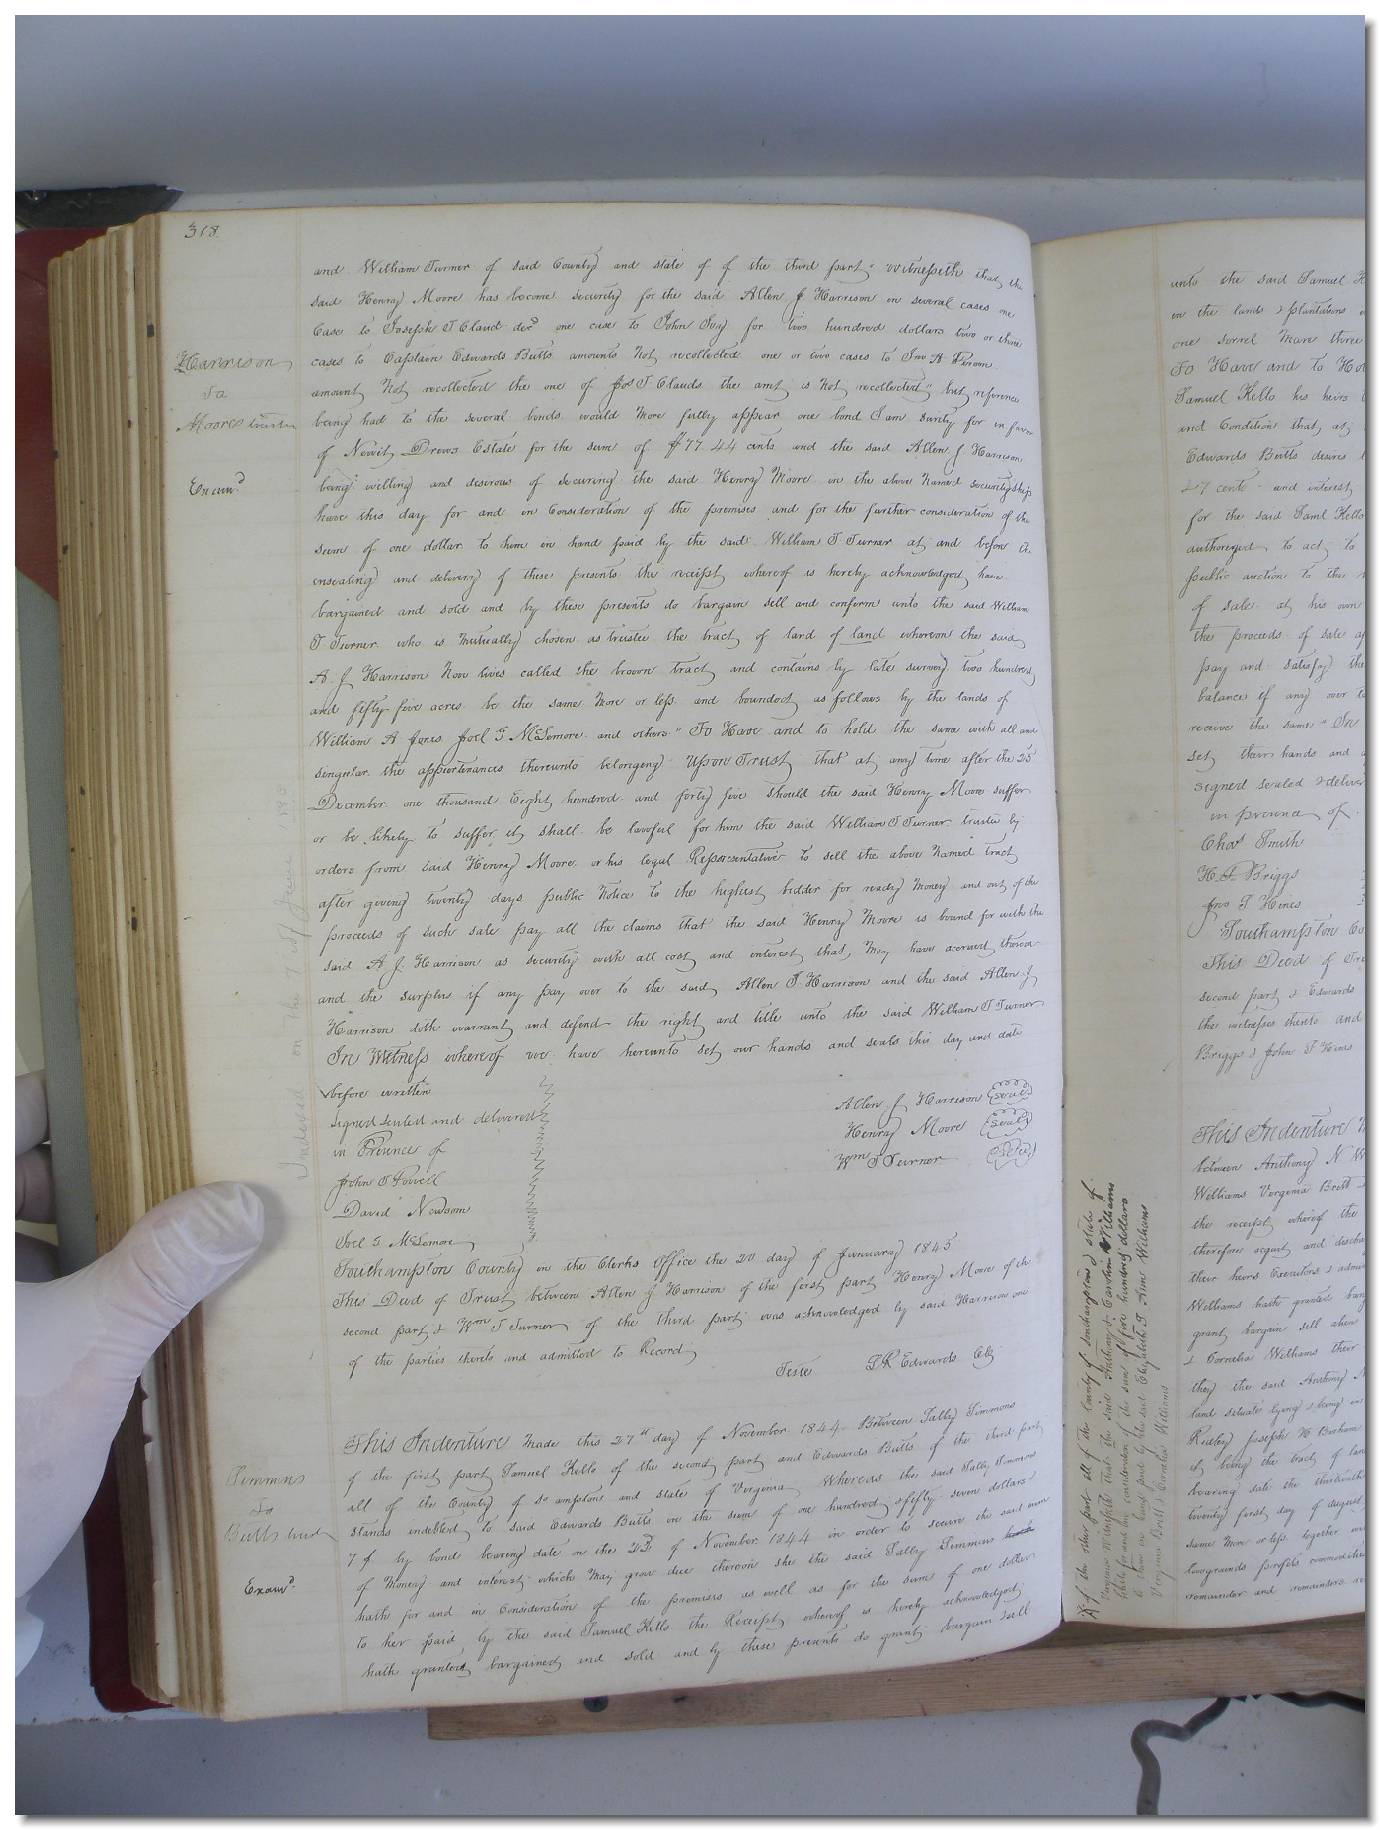 318
and William Turner of said County and state of of the third part" Witnesseth that the
said Henry Moore has become security for the said Allen J Harrison in several cases one
Case to Joseph T Claud decd one case to John Ivy for two hundred dollars two or three
cases to Captain Edwards Butts amounts Not recollected one or two cases to Jno A
amount Not recollected the one of Jos T Clauds the amt is Not recollected" but reference
being had to the several bonds would More fully appear one bond I am surety for in favor
of Newit Drews Estate for the sum of $77.44 cents and the said Allen J Harrison
being willing and desirous of securing the said Henry Moore in the above Named securityships
have this day for and in Consideration of the premises and for the further consideration of the
sum of one dollar to him in hand paid by the said William T Turner at and before the
ensealing and delivery of these presents the receipt whereof is hereby acknowledged have
bargained and sold and by these presents do bargain sell and confirm unto the said William
T Turner who is Mutually chosen as trustee the tract of land of land whereon the said
A. J Harrison Now lives called the brown tract and contains by late survey two hundred
and fifty five acres be the same More or less and boundod as follows by the lands of
William A Jones Joel G McLemore and others" To Have and to hold the same with all and
singular the appurtenances thereunto belonging Upon Trust that at any time after the 25
December one thousand Eight hundred and forty five should the said Henry Moore suffer
or be likely to suffer it shall be lawful for him the said William T Turner trustee by
orders from said Henry Moore or his legal Representative to sell the above Named tract
after giving twenty days public Notice to the highest bidder for ready Money and out of the
proceeds of such sale pay all the claims that the said Henry Moore is bound for with the
said A J. Harrison as security with all cost and interest that May have accrued thereon
and the surplus if any pay over to the said Allen J Harrison and the said Allen J
Harrison doth warrant and defend the right and title unto the said William T Turner
In Witness whereof we have hereunto set our hands and seals this day and date
before written
signed sealed and delivered
in Presence of
John T Powell
David Newsom
Joel G McLemore
Allen J Harrison seal
Henry Moore seal
Wm T Turner seal
Southampton County in the Clerks Office the 20 day of January 1845
This Deed of Trust between Allen J Harrison of the first part Henry Moore of the
second part & Wm T Turner of the third part was acknowledged by said Harrison one
of the parties thereto and admitted to Record
Teste
L R Edwards Clk
This Indenture Made this 27th day of November 1844 Between Sally Simmons
of the first part Samuel Kello of the second part and Edwards Butts of the third part
all of the County of So ampton and state of Virginia Whereas the said Sally Simmons
stands indebted to said Edwards Butts in the sum of one hundred & fifty seven dollars
by bond bearing date on the 23 of November 1844 in order to secure the said sum
of Money and interest which May grow due thereon she the said Sally Simmons
hath for and in Consideration of the premises as well as for the sum of one dollar
to her paid by the said Samuel Kello the Receipt whereof is hereby acknowledged
hath granted bargained and sold and by these presents do grant bargain & sell
Harrison
To
Moores trustee
Examd
Simmons
To
Butts
Examd.
unto the said Samuel
in the lands & plantations
one sorrel Mare three
To Have and to Ho
Samuel Kello his heirs
and Condition that at
Edwards Butts desires
27 cents and interest
for the said Saml Kello
to act to
public auction to the
of sale at his own
the proceeds of sale
pay and satisfy the
balance if any over
receive the same" In
set their hands and
signed sealed & deliver
in presence of
Chas Smith
H. Briggs
Jno T Hines
Southampton Co
This Deed of Tru
second part & Edwards
the witnesses thereto and
Briggs & John T Hines
This Indenture M
between Anthony N W
Williams Virginia Britt
the receipt whereof the
therefore acquit and discha
their heirs Executors & admi
Williams hath granted barg
grant bargain sell alien
& Cornelia Williams their
they the said Anthony
land situate lying & being in
Ridley Joseph
it being the tract of lan
bearing date the thirteenth
twenty first day of august
same More or less together
lowgrounds profits commodities
remainder and remainders
of the other part all of the County of Southampton & state of
Virginia Witnesseth that the said Anthony & Caroline Williams
for and in consideration of the sum of five hundred dollars
to them in hand paid by the said Elizabeth G. Ann Williams
Virginia Britt & Cornelia Williams